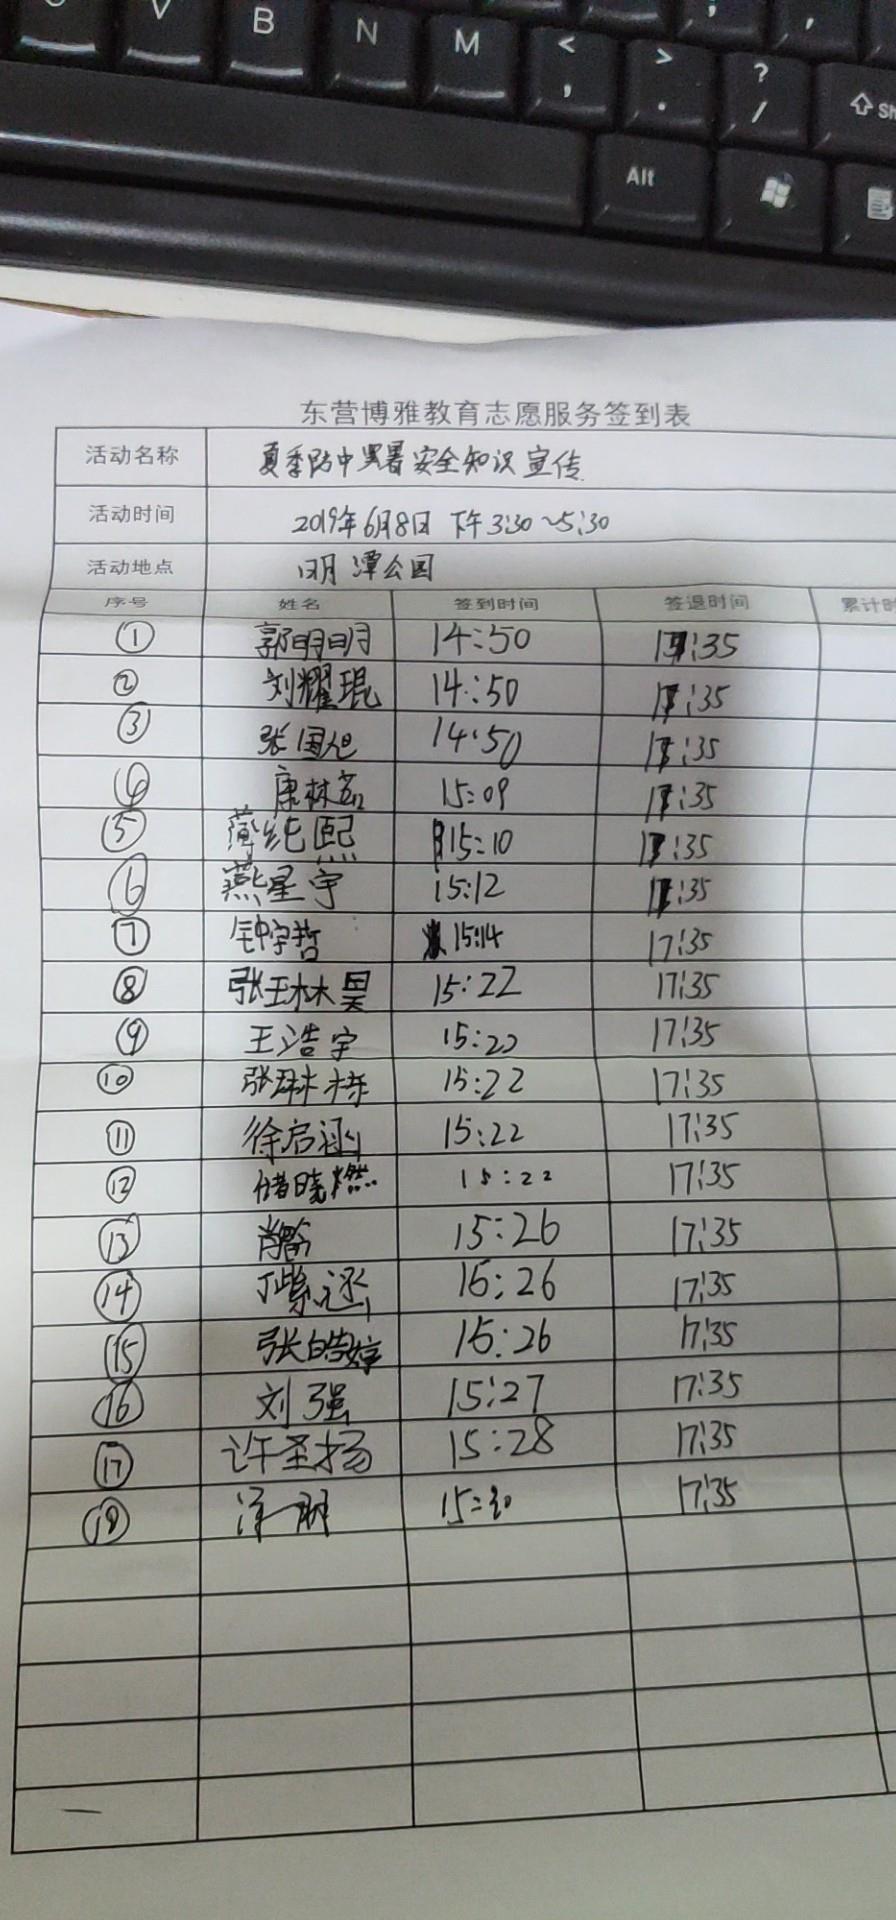 V B N M < , > . ? / Sh
Alt
东营博雅教育志愿服务签到表
活动名称 夏季防中暑安全知识宣传
活动时间 2019年6月8日 下午3:30~5:30
活动地点 明月潭公园
序号 姓名 签到时间 签退时间 累计时
① 郭明明 14:50 17:35
② 刘耀琨 14:50 17:35
③ 张国旭 14:50 17:35
④ 康林 15:09 17:35
⑤ 薄纯熙 15:10 17:35
⑥ 燕星宇 15:12 17:35
⑦ 钟宇哲 15:14 17:35
⑧ 张王林昊 15:22 17:35
⑨ 王浩宇 15:22 17:35
⑩ 张琳栋 15:22 17:35
⑪ 徐启涵 15:22 17:35
⑫ 褚晓燃 15:22 17:35
⑬ 肖 15:26 17:35
⑭ 丁紫 15:26 17:35
⑮ 张皓婷 15:26 17:35
⑯ 刘强 15:27 17:35
⑰ 许圣扬 15:28 17:35
⑱ 15:30 17:35